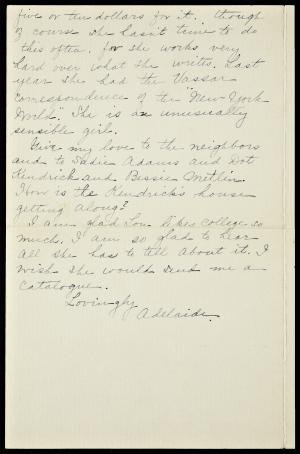 five or ten dollars for it, though
of course she hasn't time to do
this often, for she works very
hard over what she writes. Last
year she had the Vassar
correspondence of the "New York
World." She is an unusually
sensible girl.
Give my love to the neighbors
and to Sadie Adams and Dot
Kendrick and Bessie Metlin.
How is the Kendrick's house
getting along?
I am glad Lou likes college so
much. I am so glad to hear
all she has to tell about it. I
wish she would send me a
catalogue.
Lovingly
Adelaide.